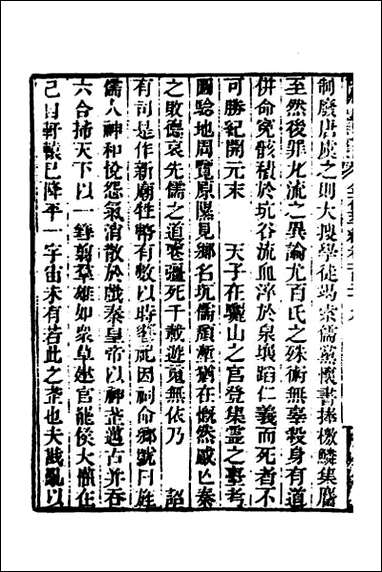 制廢唐虞之則大搜學徒竭索儒黨懷書捧檄鱗集麇
至然後罪九流之異論尤百氏之殊術無辜殺身有道
併命冤骸積於坑谷流血淬於泉壤蹈仁義而死者不
可勝紀開元末　天子在驪山之宮登集靈之臺考
圖驗地周覽原隰見鄉名坑儒頹塹猶在慨然感亡秦
之敗德哀先儒之道喪彌死千載遊魂無依乃　詔
有司是作新廟牲幣有數以時饗祀因祠命鄉號曰旌
儒人神和悅怨氣消散於戲秦皇帝以神武邁古并吞
六合掃天下以一彗剪羣雄如衆草建官罷侯大權在
己自軒轅已降平一宇宙未有若此之盛也夫戡亂以